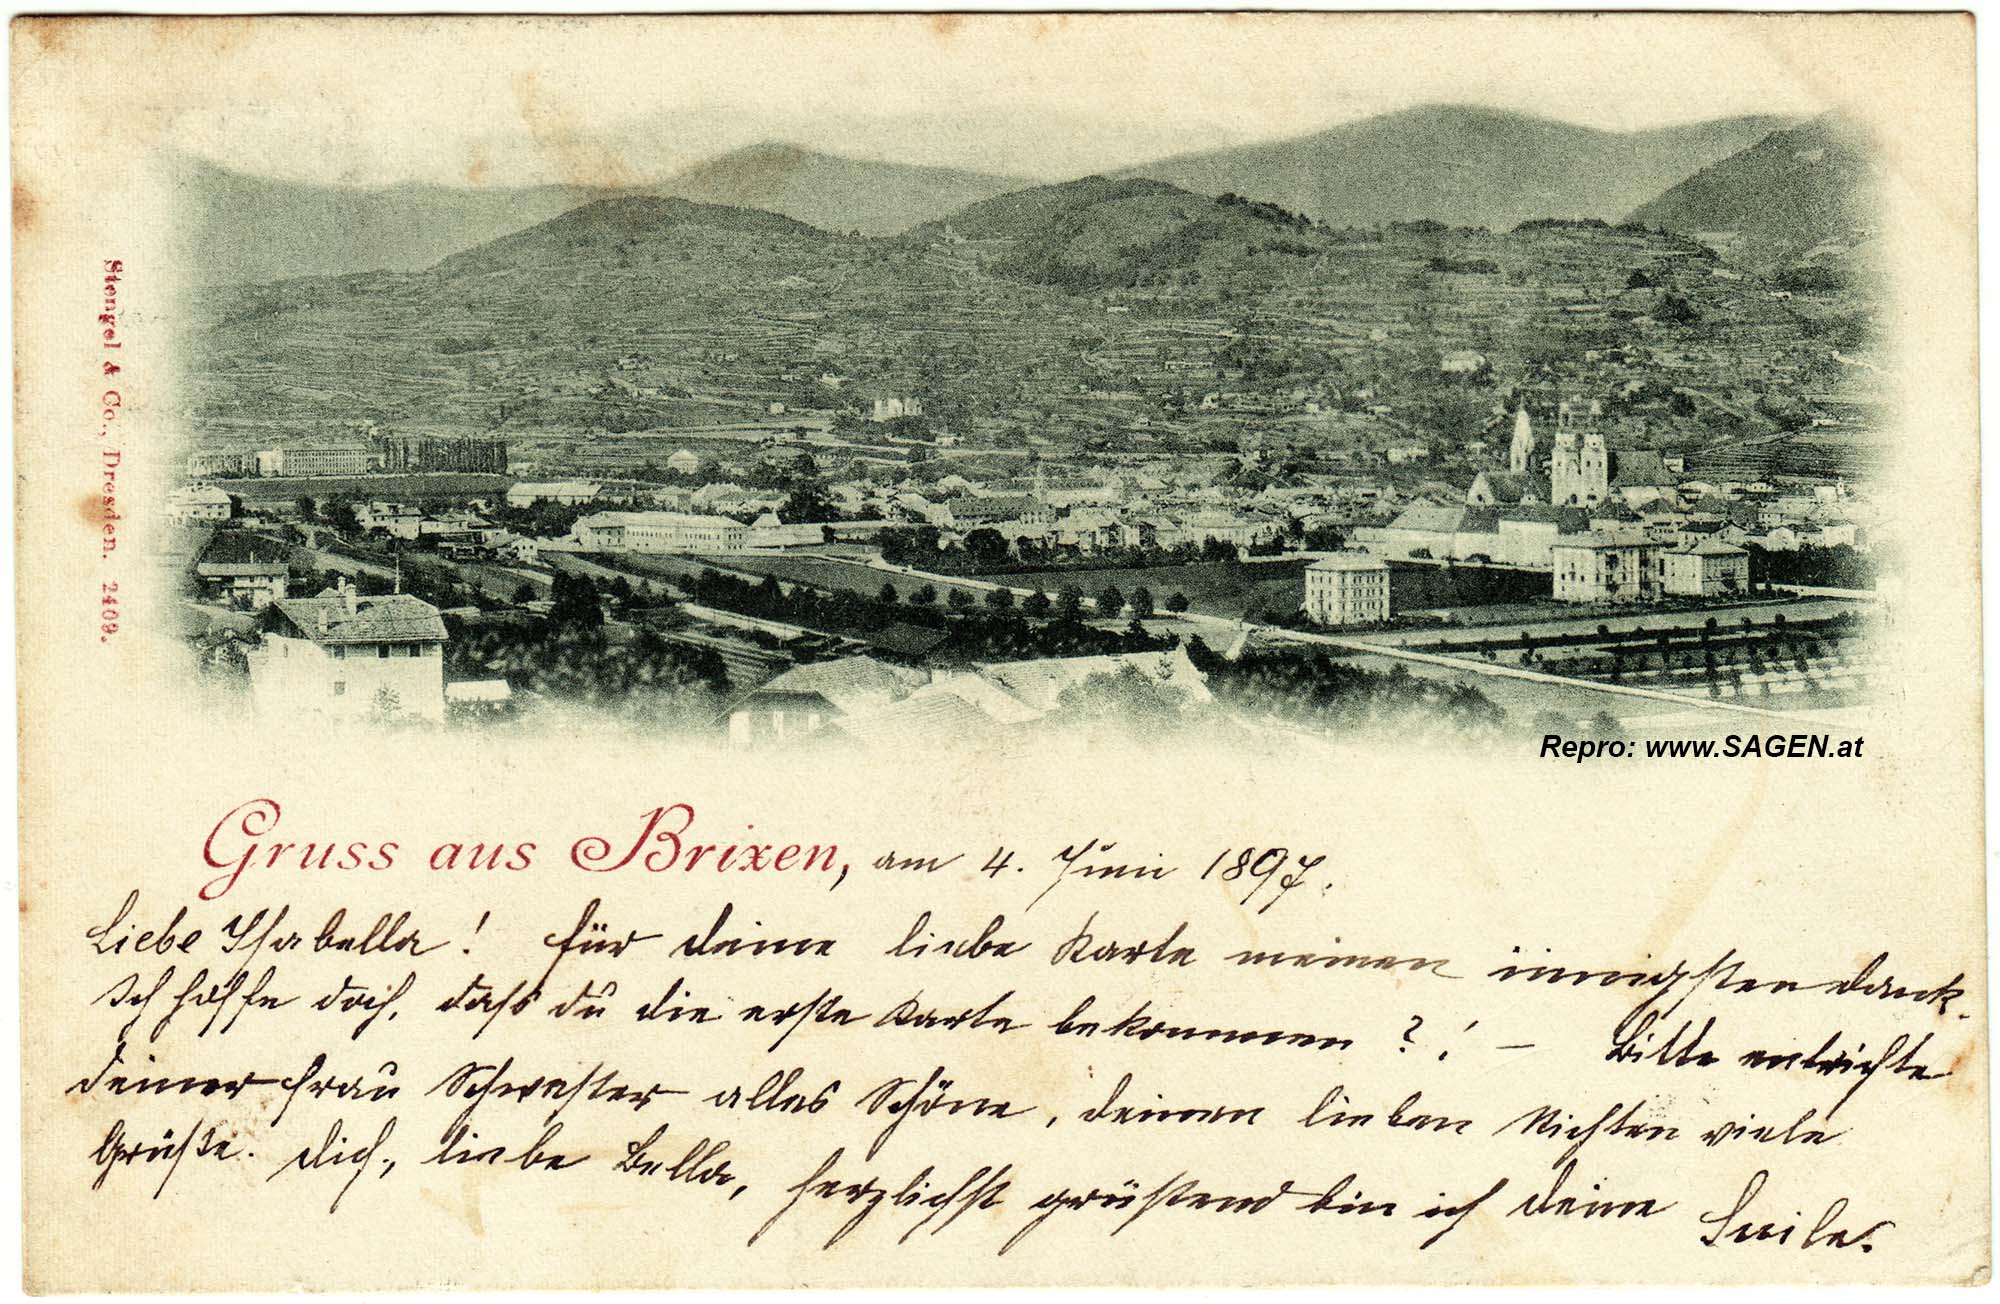 Stengel & Co., Dresden. 2409.
Repro: www.SAGEN.at
Gruss aus Brixen, am 4. Juni 1897.
Liebe Isabella! Für deine liebe Karte meinen innigsten Dank.
Ich hoffe doch, dass du die erste Karte bekommen?! – Bitte entrichte
deiner Frau Schwester alles Schöne, deinen lieben Nichten viele
Grüße. Dich, liebe Bella, herzlichst grüßend bin ich deine